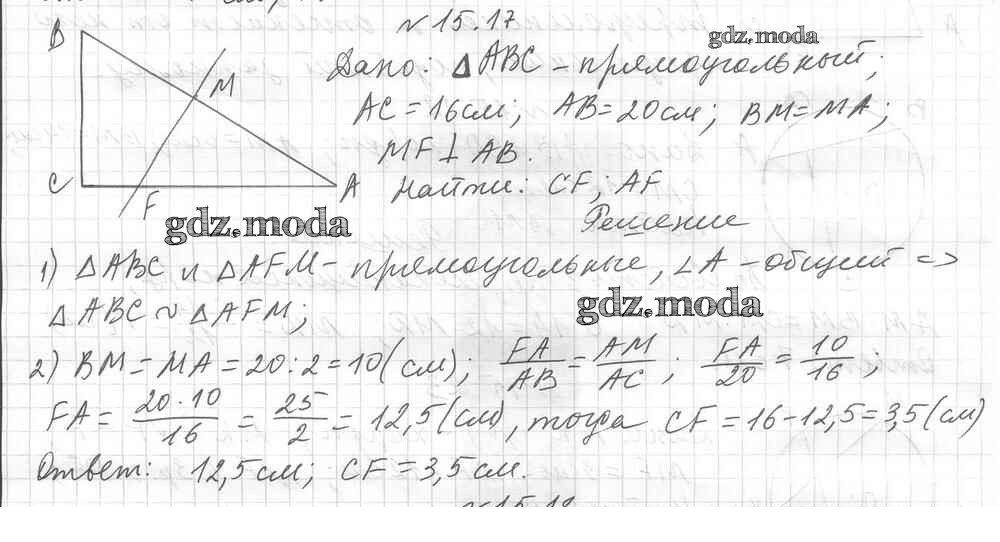 № 15.17
gdz.moda
B
M
C
F
A
Дано: △ABC - прямоугольный;
AC = 16 см; AB = 20 см; BM = MA;
MF ⊥ AB.
Найти: CF; AF
Решение
gdz.moda
1) △ABC и △AFM - прямоугольные, ∠A - общий =>
△ABC ~ △AFM;
gdz.moda
2) BM = MA = 20 : 2 = 10 (см); FA/AB = AM/AC; FA/20 = 10/16;
FA = 20·10/16 = 25/2 = 12,5 (см), тогда CF = 16 - 12,5 = 3,5 (см)
Ответ: 12,5 см; CF = 3,5 см.